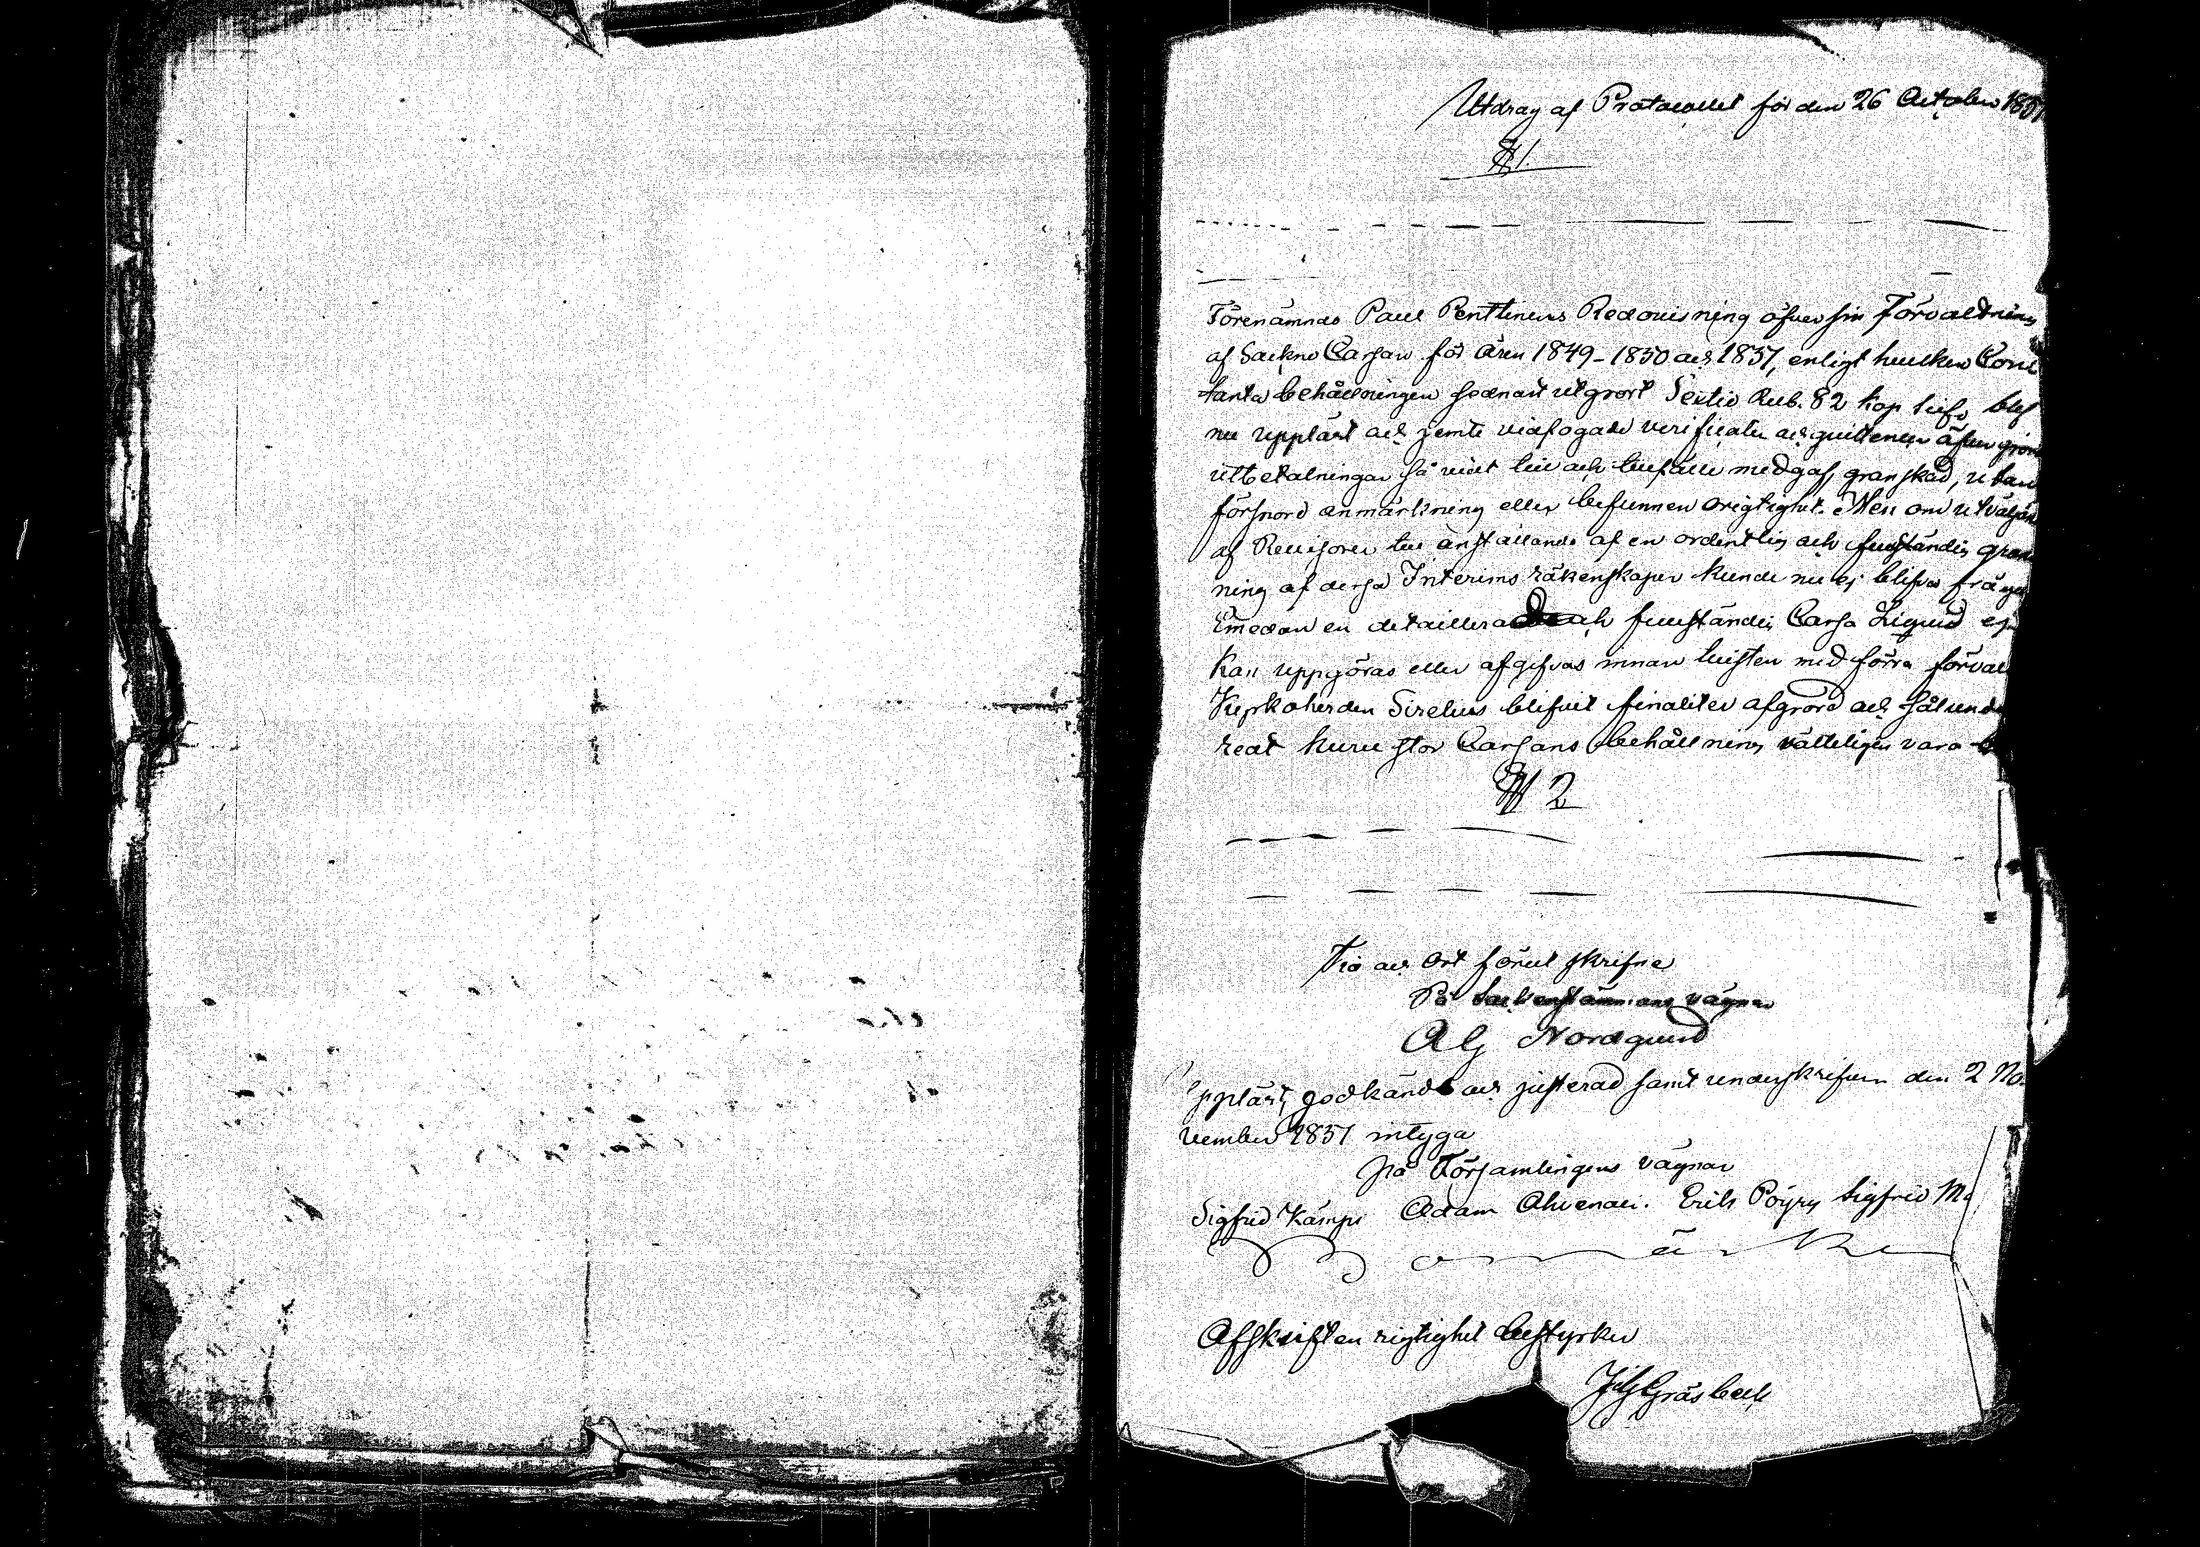 Utdrag af Protocollet för den 26 October 1851
§ 1.
Förenämnde Paul Penttinens Redovisning öfver sin Förvaltning
af Sockne Cassan för åren 1849–1850 och 1851, enligt hvilken Cons
tanta behållningen sednast utgiort Sextio Rub. 82 kop Silfv, blef
nu uppläst och jemte vidfogade verificater och quittencer öfver giorde
utbetalningar så vidt tid och tillfälle medgaf, granskad, utan
försport anmärkning eller befunnen origtighet. Men om utväljande
af Revisorer till anställande af en ordentlig och fullständig gransk
ning af dessa Interims räkenskaper kunde nu ej blifva fråga
Emedan en detaillerad och fullständig Cassa Liquid ej
kan uppgöras eller afgifvas innan tvisten med förra förval
Kyrkoherden Sirelius blifvit finaliter afgiord och sålunda
redt huru stor Cassans behållning rätteligen vara
§ 2
Tid och Ort förut skrifne
På Sockenstämmans vägnar
A G Nordqund
Uppläst, godkändt och justerad samt underskrifven den 2 No
vember 1851 intyga
På Församlingens vägnar
Sigfrid Kämpi Adam Ahvenai. Erik Pöyry Sigfrid M
Bomärke
Afskriften rigtighet bestyrker
J G Gråsbeck